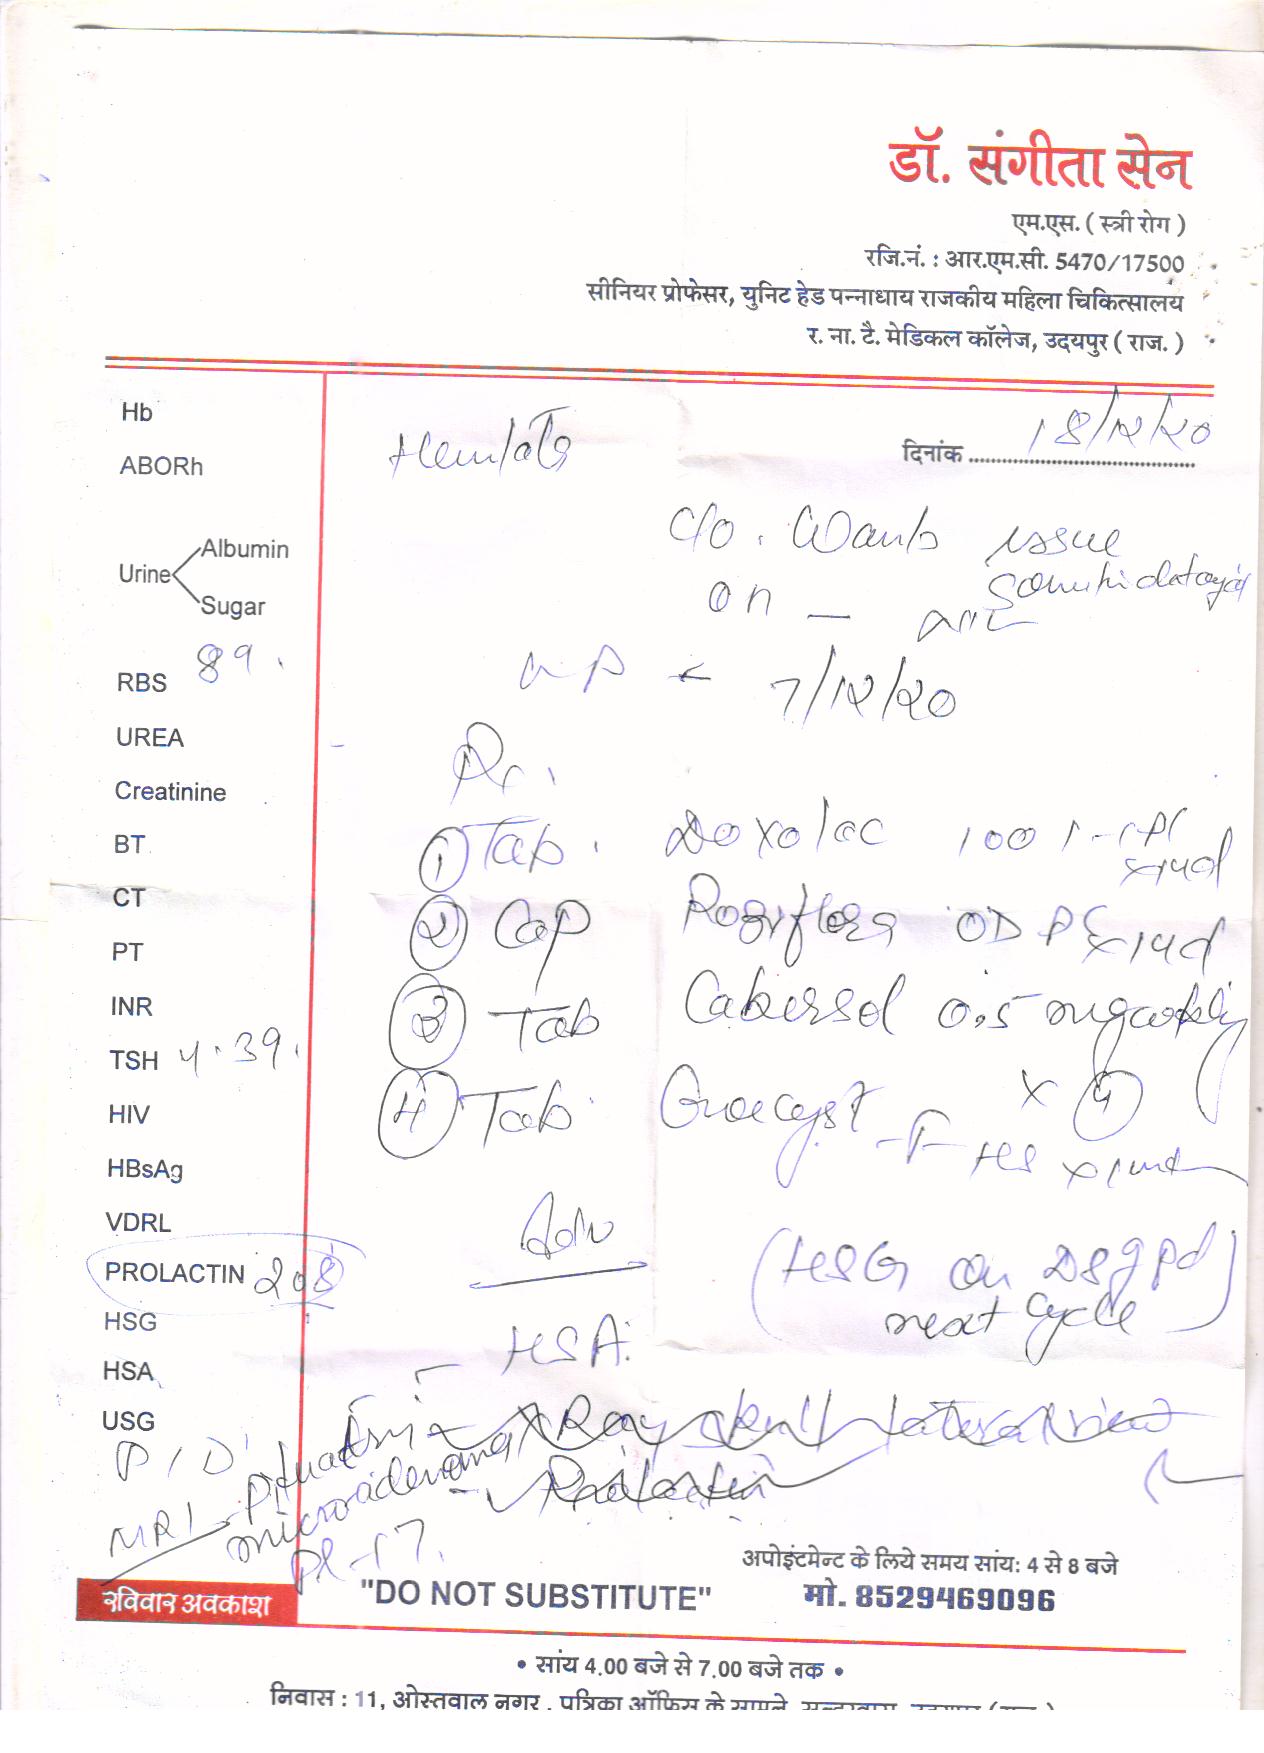 डॉ. संगीता सेन
एम.एस. ( स्त्री रोग )
रजि.नं. : आर.एम.सी. 5470/17500
सीनियर प्रोफेसर, युनिट हेड पन्नाधाय राजकीय महिला चिकित्सालय
र. ना. टै. मेडिकल कॉलेज, उदयपुर ( राज. )
Hb
दिनांक 18/12/20
ABORh
C/O. Wants issue
Urine Albumin Sugar
on —
RBS 89.
LMP - 7/12/20
UREA
Rx.
Creatinine
BT
① Tab. Doxolac 100 1-1 PC x 14d
CT
② Cap OD PC x 14d
PT
INR
③ Tab Cabersol 0.5 mg weekly
x 4
TSH 4.39.
HIV
④ Tab Ovacyst - F HS x 1 mth
HBsAg
VDRL
Adv
PROLACTIN 208
(HSG on D8 of pd
next cycle)
HSG
HSA.
HSA
USG
X Ray skull lateral view
P/D
Prolactin
MRI - Pituitary
microadenoma
PL - 17.
अपोइंटमेन्ट के लिये समय सांय: 4 से 8 बजे
रविवार अवकाश
"DO NOT SUBSTITUTE"
मो. 8529469096
• सांय 4.00 बजे से 7.00 बजे तक •
निवास : 11, ओस्तवाल नगर, पत्रिका ऑफिस के सामने,